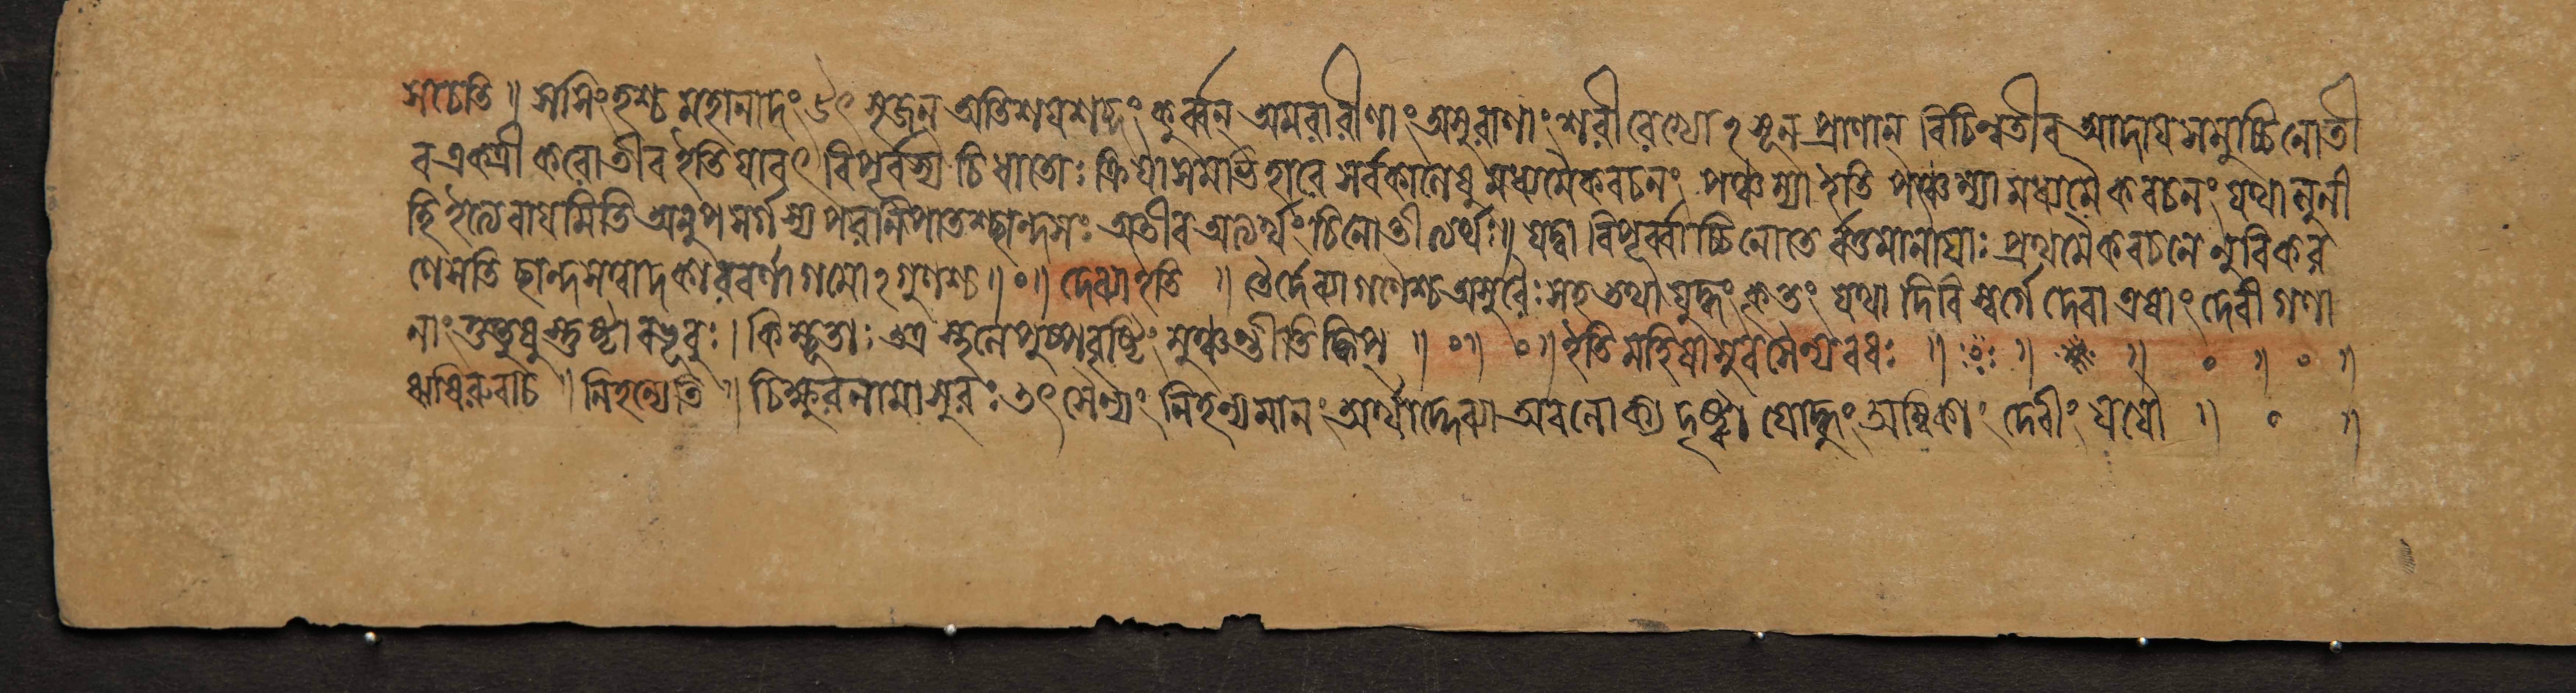 স চেতি ॥ স সিংহশ্চ মহানাদং উৎসৃজন অতিশয়শব্দং কুর্ব্বন্ অমরারীণাং অসুরাণাং শরীরেভ্যোঽসূন প্রাণান বিচিন্বতীব আদায় সমুচ্চিনোতী
ব একত্রী করোতীব ইতি যাবৎ বিপূর্বস্য চি ধাতোঃ ক্রিয়াসমভিহারে সর্বকালেষু মধ্যমৈকবচনং পঞ্চম্যা ইতি পঞ্চম্যা মধ্যমৈকবচনং যথা লুনী
হি ইত্যেবায়মিতি অনুপসর্গস্য পরনিপাতশ্ছান্দসঃ অতীব অত্যর্থং চিনোতীত্যর্থঃ॥ যদ্বা বিপূর্ব্বাচ্চিনোতে র্বর্ত্তমানায়াঃ প্রথমৈকবচনে নুবিকর
ণে সতি ছান্দসত্বাদকারবর্ণাগমোঽগুণশ্চ ॥ ০ ॥ দেব্যা ইতি ॥ তৈর্দেব্যা গণৈশ্চ অসুরৈঃ সহ তথা যুদ্ধং কৃতং যথা দিবি স্বর্গে দেবা এষাং দেবী গণা
নাং তুতুষুস্তুষ্টা বভূবুঃ। কিম্ভূতাঃ পুষ্পবৃষ্টিং মুঞ্চন্তীতি ক্বিপ্ ॥ ০ ॥ ০ ॥ ইতি মহিষাসুরসৈন্যবধঃ ॥ ॥ ॥ ০ ॥ ০ ॥
ঋষিরুবাচ ॥ নিহন্যেতি ॥ চিক্ষুরনামাসুরঃ তৎ সৈন্যং নিহন্যমানং অর্থাদ্দেব্যা অবলোক্য দৃষ্ট্বা যোদ্ধুং অম্বিকাং দেবীং যযৌ ॥ ০ ॥